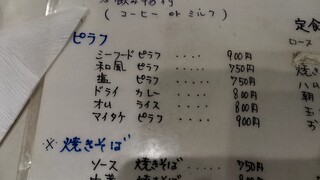 (コーヒー or ミルク)
ピラフ
シーフード ピラフ ‥‥ 900円
和風 ピラフ ‥‥ 750円
塩 ピラフ ‥‥ 750円
ドライ カレー ‥‥ 800円
オム ライス ‥‥ 800円
マイタケ ピラフ ‥‥ 900円
※ 焼きそば
ソース 焼きそば ‥‥ 750円
定食
ロース
焼き